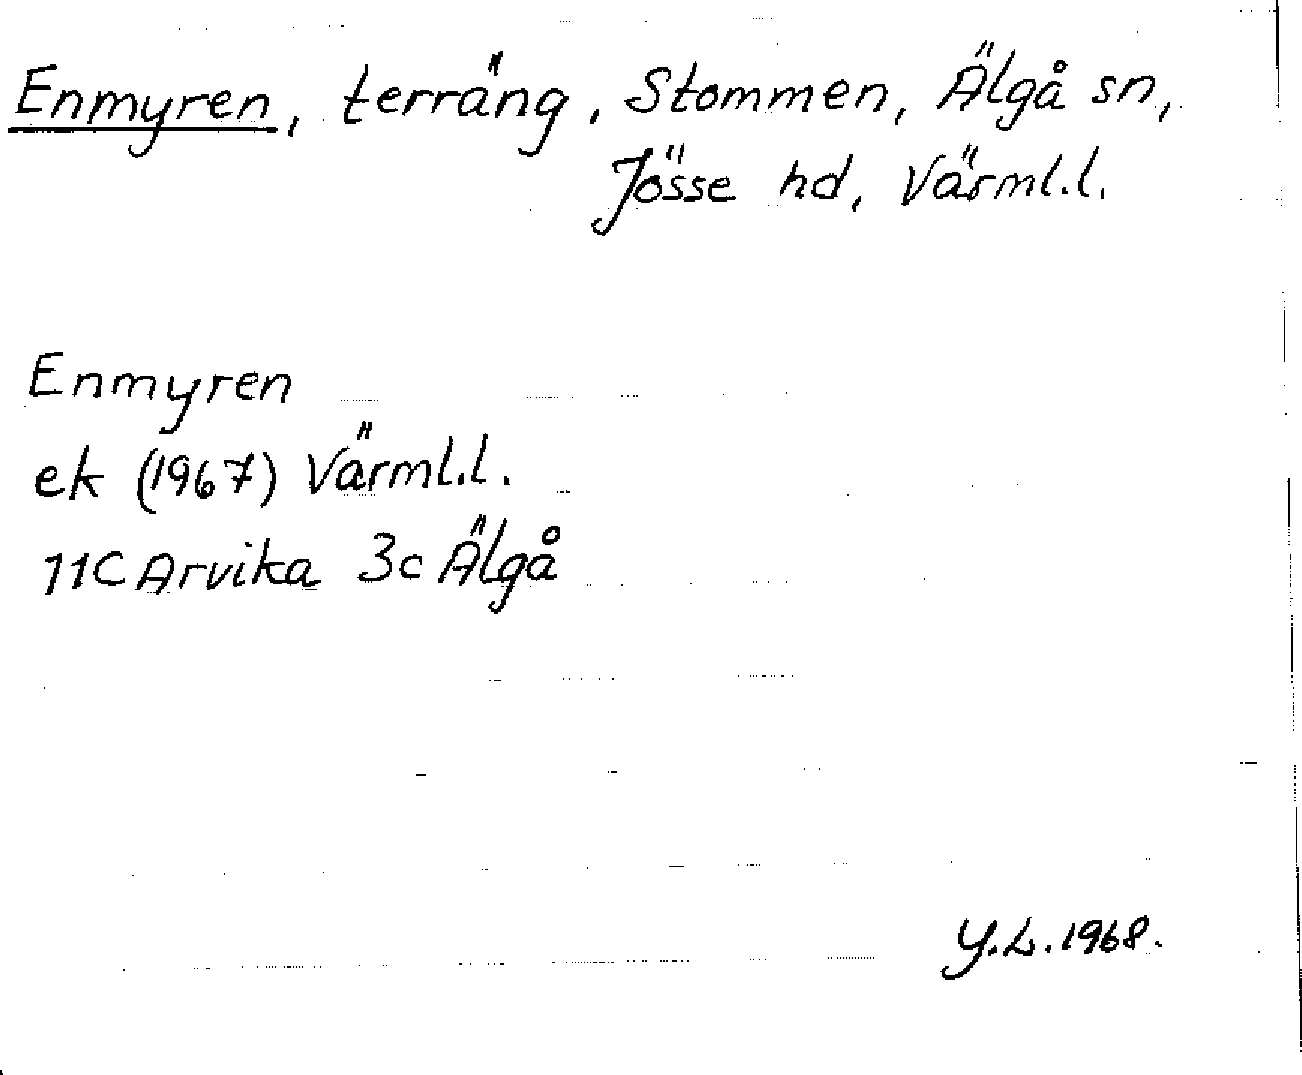 Enmyren, terräng, Stommen, Älgå sn,
Jösse hd, Värml.l.
Enmyren
ek (1967) Värml.l.
11C Arvika 3c Älgå
Y.L. 1968.